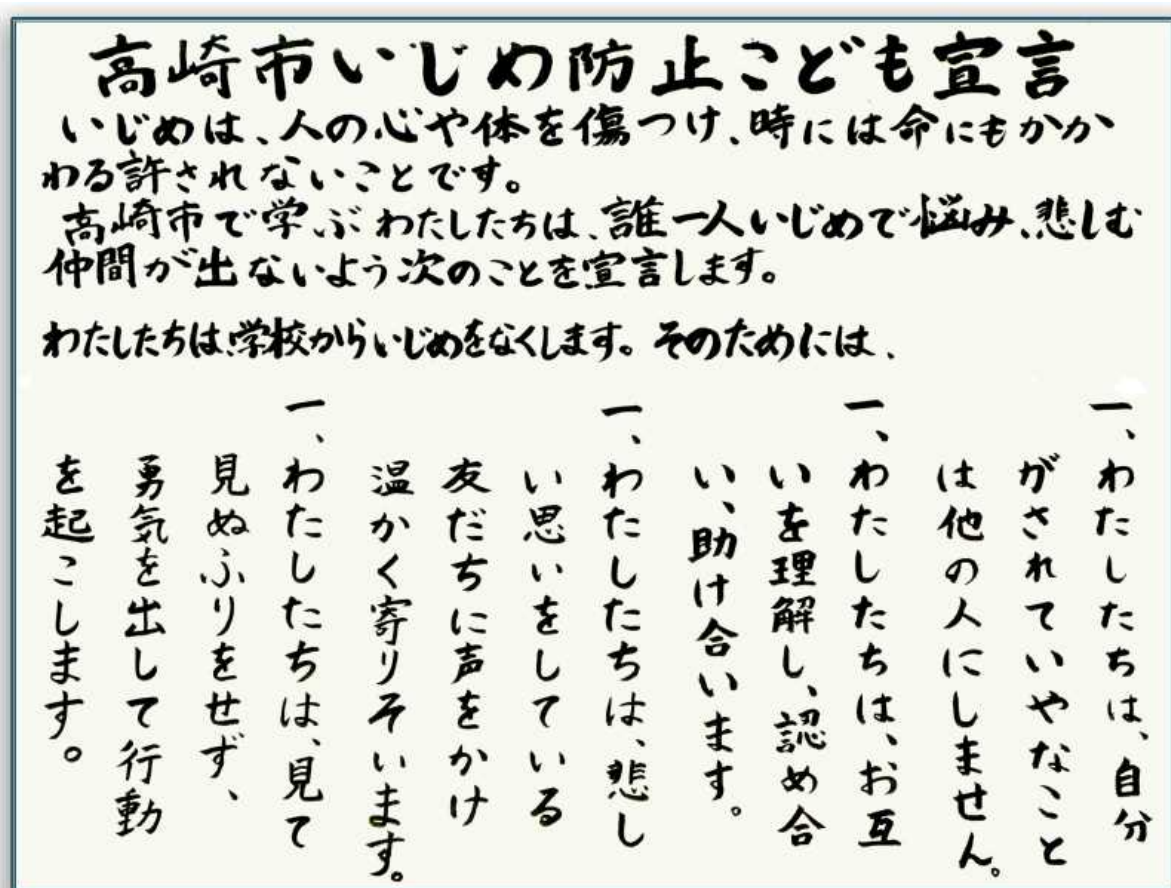 高崎市いじめ防止こども宣言
いじめは、人の心や体を傷つけ、時には命にもかか
わる許されないことです。
高崎市で学ぶわたしたちは、誰一人いじめで悩み、悲しむ
仲間が出ないよう次のことを宣言します。
わたしたちは、学校からいじめをなくします。そのためには、
一、わたしたちは、自分
がされていやなこと
は他の人にしません。
一、わたしたちは、お互
いを理解し、認め合
い、助け合います。
一、わたしたちは、悲し
い思いをしている
友だちに声をかけ
温かく寄りそいます。
一、わたしたちは、見て
見ぬふりをせず、
勇気を出して行動
を起こします。